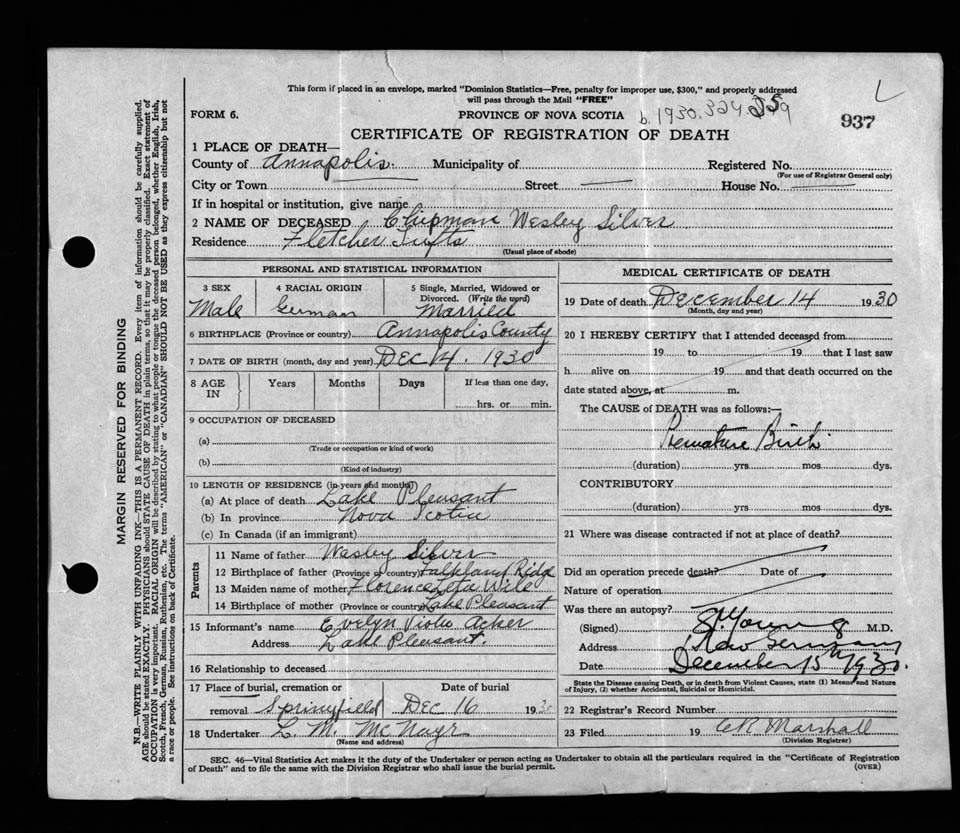 This form if placed in an envelope, marked "Dominion Statistics—Free, penalty for improper use, $300," and properly addressed
will pass through the Mail "FREE"
L
FORM 6.
PROVINCE OF NOVA SCOTIA
b. 1930.324
937
CERTIFICATE OF REGISTRATION OF DEATH
1 PLACE OF DEATH—
County of Annapolis. Municipality of Registered No.
(For use of Registrar General only)
City or Town Street House No.
If in hospital or institution, give name
2 NAME OF DECEASED Chipman Wesley Silver
Residence Fletcher Tufts
(Usual place of abode)
PERSONAL AND STATISTICAL INFORMATION
3 SEX 4 RACIAL ORIGIN 5 Single, Married, Widowed or Divorced. (Write the word)
Male German Married
6 BIRTHPLACE (Province or country) Annapolis County
7 DATE OF BIRTH (month, day and year) DEC 14. 1930
8 AGE IN Years Months Days If less than one day,
hrs. or min.
9 OCCUPATION OF DECEASED
(a)
(Trade or occupation or kind of work)
(b)
(Kind of industry)
10 LENGTH OF RESIDENCE (in years and months)
(a) At place of death Lake Pleasant
(b) In province Nova Scotia
(c) In Canada (if an immigrant)
Parents
11 Name of father Wasley Silver
12 Birthplace of father (Province or country) Falkland Ridge
13 Maiden name of mother Florence Leta Wile
14 Birthplace of mother (Province or country) Lake Pleasant
15 Informant's name Evelyn Viola Acker
Address Lake Pleasant.
16 Relationship to deceased
17 Place of burial, cremation or removal Date of burial
Springfield Dec 16 1930
18 Undertaker L. M. McNayr
(Name and address)
MEDICAL CERTIFICATE OF DEATH
19 Date of death December 14 1930
(Month, day and year)
20 I HEREBY CERTIFY that I attended deceased from
19 to 19 that I last saw
h alive on 19 and that death occurred on the
date stated above, at m.
The CAUSE of DEATH was as follows:—
Premature Birth
(duration) yrs mos dys.
CONTRIBUTORY
(duration) yrs mos dys.
21 Where was disease contracted if not at place of death?
Did an operation precede death? Date of
Nature of operation
Was there an autopsy?
(Signed) Young M.D.
Address New Germany
Date December 15th 1930.
State the Disease causing Death, or in death from Violent Causes, state (1) Means and Nature
of Injury, (2) whether Accidental, Suicidal or Homicidal.
22 Registrar's Record Number
23 Filed 19 CR Marshall
(Division Registrar)
SEC. 46—Vital Statistics Act makes it the duty of the Undertaker or person acting as Undertaker to obtain all the particulars required in the "Certificate of Registration
of Death" and to file the same with the Division Registrar who shall issue the burial permit.
(OVER)
MARGIN RESERVED FOR BINDING
N.B.—WRITE PLAINLY WITH UNFADING INK—THIS IS A PERMANENT RECORD. Every item of information should be carefully supplied.
AGE should be stated EXACTLY. PHYSICIANS should STATE CAUSE OF DEATH in plain terms, so that it may be properly classified. Exact statement of
OCCUPATION is very important. RACIAL ORIGIN will be described by stating to what people or tongue the deceased person belonged, whether English, Irish,
Scotch, French, German, Russian, Ruthenian, etc. The terms "AMERICAN" or "CANADIAN" SHOULD NOT BE USED as they express citizenship but not
a race or people. See instructions on back of Certificate.